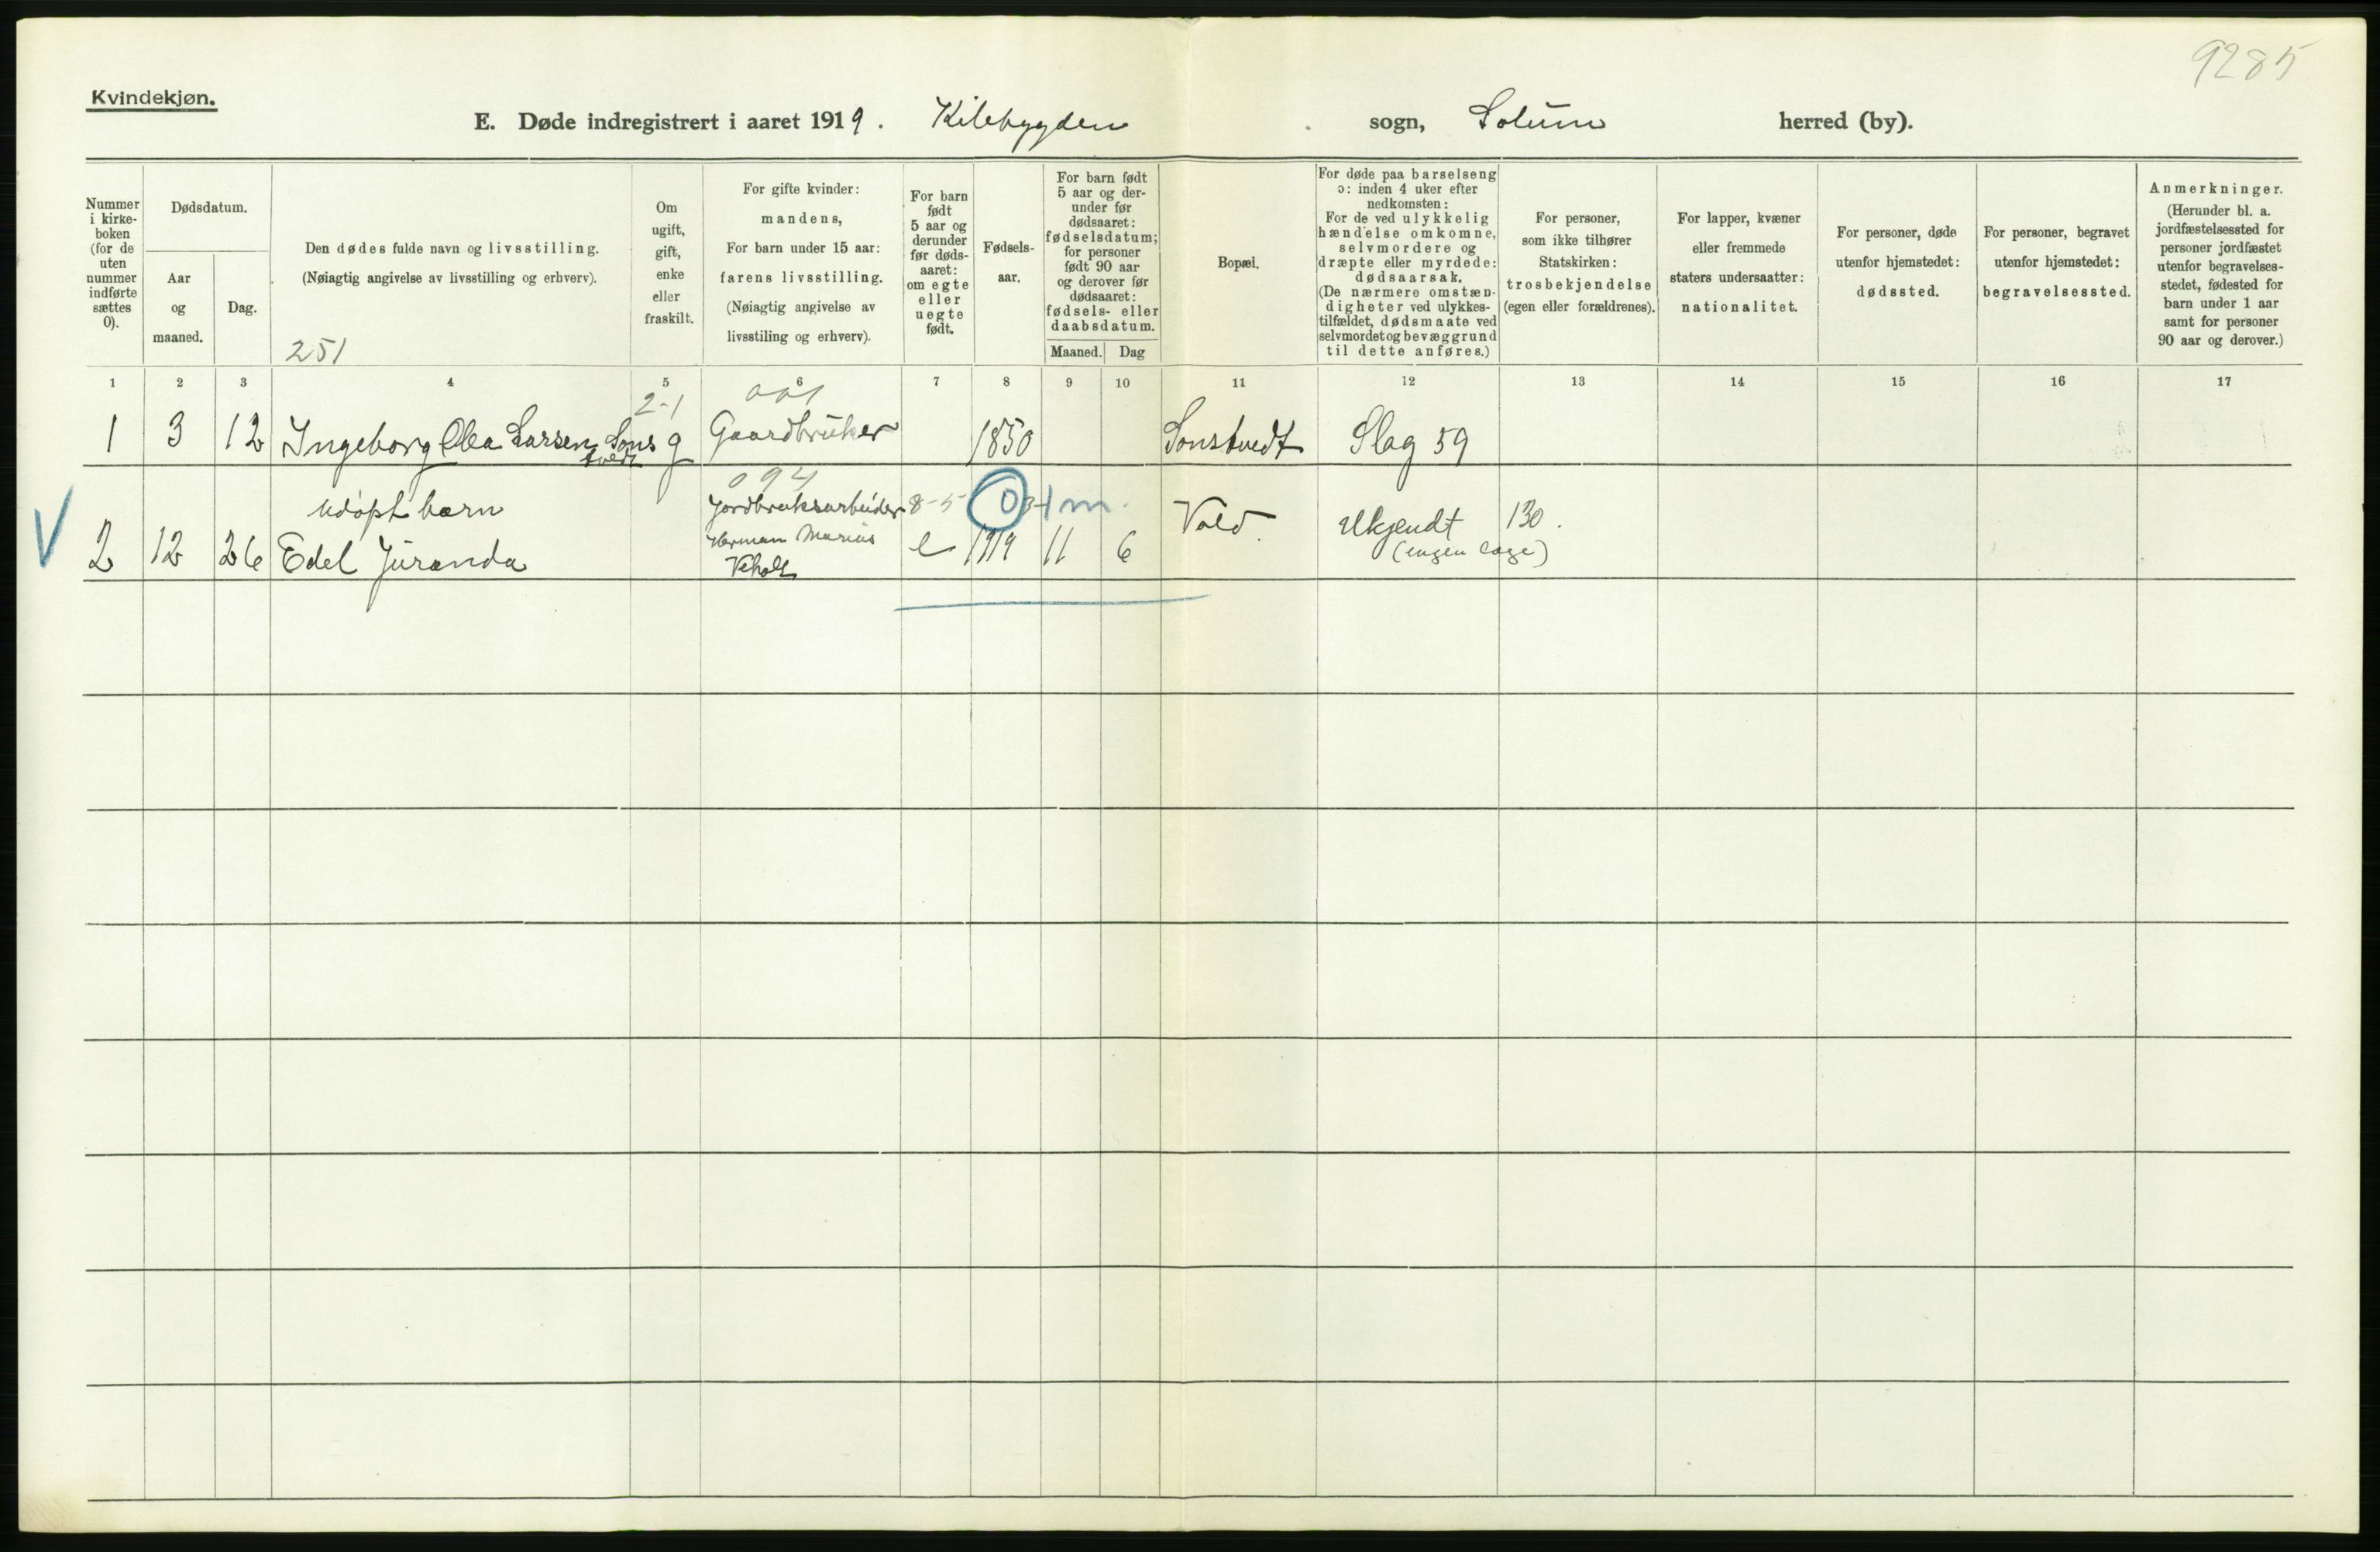 9285
Kvindekjøn.
E. Døde indregistrert i aaret 1919. Kilebygden sogn, Solum herred (by).
Nummer
i kirke-
boken
(for de
uten
nummer
indførte
sættes
0).
Dødsdatum.
Aar
og
maaned.
Dag.
Den dødes fulde navn og livsstilling.
(Nøiagtig angivelse av livsstilling og erhverv).
251
Om
ugift,
gift,
enke
eller
fraskilt.
For gifte kvinder:
mandens,
For barn under 15 aar:
farens livsstilling.
(Nøiagtig angivelse av
livsstiling og erhverv).
For barn
født
5 aar og
derunder
før døds-
aaret:
om egte
eller
uegte
født.
Fødsels-
aar.
For barn født
5 aar og der-
under før
dødsaaret:
fødselsdatum;
for personer
født 90 aar
og derover før
dødsaaret:
fødsels- eller
daabsdatum.
Maaned. Dag
Bopæl.
For døde paa barselseng
ɔ: inden 4 uker efter
nedkomsten:
For de ved ulykkelig
hændelse omkomne,
selvmordere og
dræpte eller myrdede:
dødsaarsak.
(De nærmere omstæn-
digheter ved ulykkes-
tilfældet, dødsmaate ved
selvmordet og bevæggrund
til dette anføres.)
For personer,
som ikke tilhører
Statskirken:
trosbekjendelse
(egen eller forældrenes).
For lapper, kvæner
eller fremmede
staters undersaatter:
nationalitet.
For personer, døde
utenfor hjemstedet:
dødssted.
For personer, begravet
utenfor hjemstedet:
begravelsessted.
Anmerkninger.
(Herunder bl. a.
jordfæstelsessted for
personer jordfæstet
utenfor begravelses-
stedet, fødested for
barn under 1 aar
samt for personer
90 aar og derover.)
1 2 3 4 5 6 7 8 9 10 11 12 13 14 15 16 17
2-1
1 3 12 Ingeborg Olea Larsen Sons g Gaardbruker 1850 Sonstvedt Slag 59
tvedt
094
udøpt barn Jordbruksarbeider 8-5 0 1m. Vold. Ukjendt 130.
2 12 26 Edel Juranda Herman Marius e 1919 11 6 (ingen læge)
Veholt